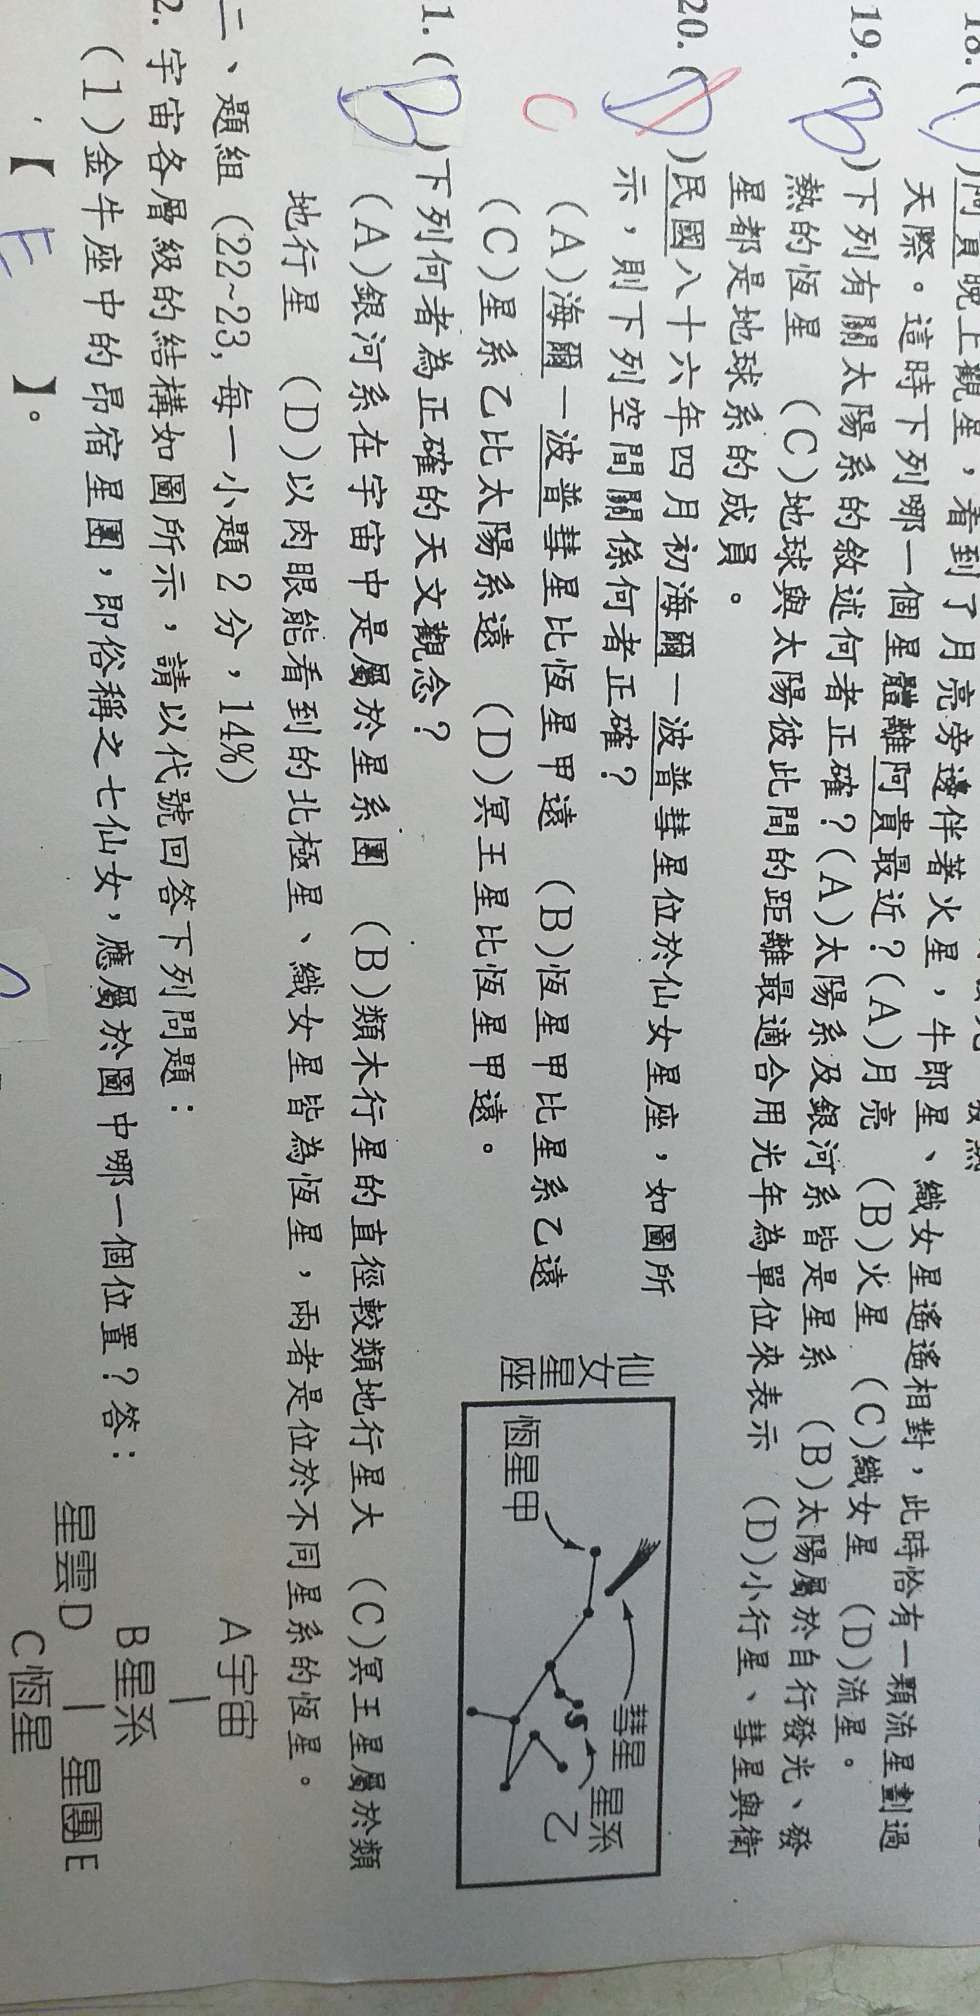 18.(
)阿貴晚上觀星，看到了月亮旁邊伴著火星，牛郎星、織女星遙遙相對，此時恰有一顆流星劃過
天際。這時下列哪一個星體離阿貴最近？(A)月亮 (B)火星 (C)織女星 (D)流星。
19.(B)下列有關太陽系的敘述何者正確？(A)太陽系及銀河系皆是星系 (B)太陽屬於自行發光、發
熱的恆星 (C)地球與太陽彼此間的距離最適合用光年為單位來表示 (D)小行星、彗星與衛
星都是地球系的成員。
20.(D)民國八十六年四月初海爾－波普彗星位於仙女星座，如圖所
C
示，則下列空間關係何者正確？
(A)海爾－波普彗星比恆星甲遠 (B)恆星甲比星系乙遠
(C)星系乙比太陽系遠 (D)冥王星比恆星甲遠。
仙女星座
恆星甲
彗星
星系乙
1.(B)下列何者為正確的天文觀念？
(A)銀河系在宇宙中是屬於星系團 (B)類木行星的直徑較類地行星大 (C)冥王星屬於類
地行星 (D)以肉眼能看到的北極星、織女星皆為恆星，兩者是位於不同星系的恆星。
二、題組 (22~23,每一小題2分，14%)
2. 宇宙各層級的結構如圖所示，請以代號回答下列問題：
(1)金牛座中的昴宿星團，即俗稱之七仙女，應屬於圖中哪一個位置？答：
【 E 】。
A宇宙
B星系
星雲D
星團E
C恆星